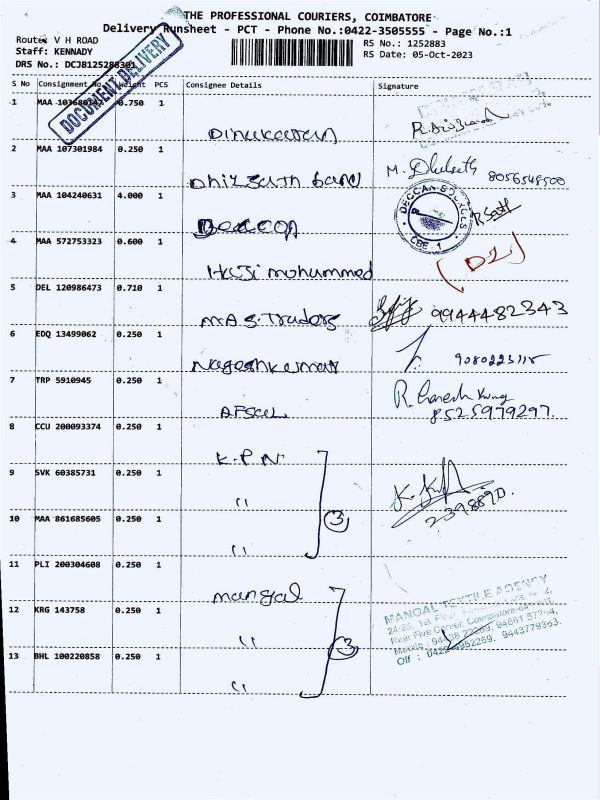 THE PROFESSIONAL COURIERS, COIMBATORE
Delivery Runsheet - PCT - Phone No.:0422-3505555 - Page No.:1
Route: V H ROAD
Staff: KENNADY
DRS No.: DCJB125288301
RS No.: 1252883
RS Date: 05-Oct-2023
DOCUMENT DELIVERY
S No Consignment No Weight PCS Consignee Details Signature
1 MAA 0.750 1
2 MAA 107301984 0.250 1
M. 8056548500
3 MAA 104240631 4.000 1
DECCAN CBE - 1
4 MAA 572753323 0.600 1
Haji mohummed (DL)
5 DEL 120986473 0.710 1
M.A S. Traders 9944482343
6 EDQ 13499062 0.250 1
Nageshkumar 9080223115
7 TRP 5910945 0.250 1
AFSAL R. Ganesh 8525979297.
8 CCU 200093374 0.250 1
K.P.N.
9 SVK 60385731 0.250 1
"
10 MAA 861685605 0.250 1
" 3 2398890.
11 PLI 200304608 0.250 1
mangal
12 KRG 143758 0.250 1
" 3
13 BHL 100220858 0.250 1
"
MANGAL TEXTILE AGENCY
24-25, 1st
Near Five Corner, Coimbatore
Mobile : 94861
Off : 9443779363.